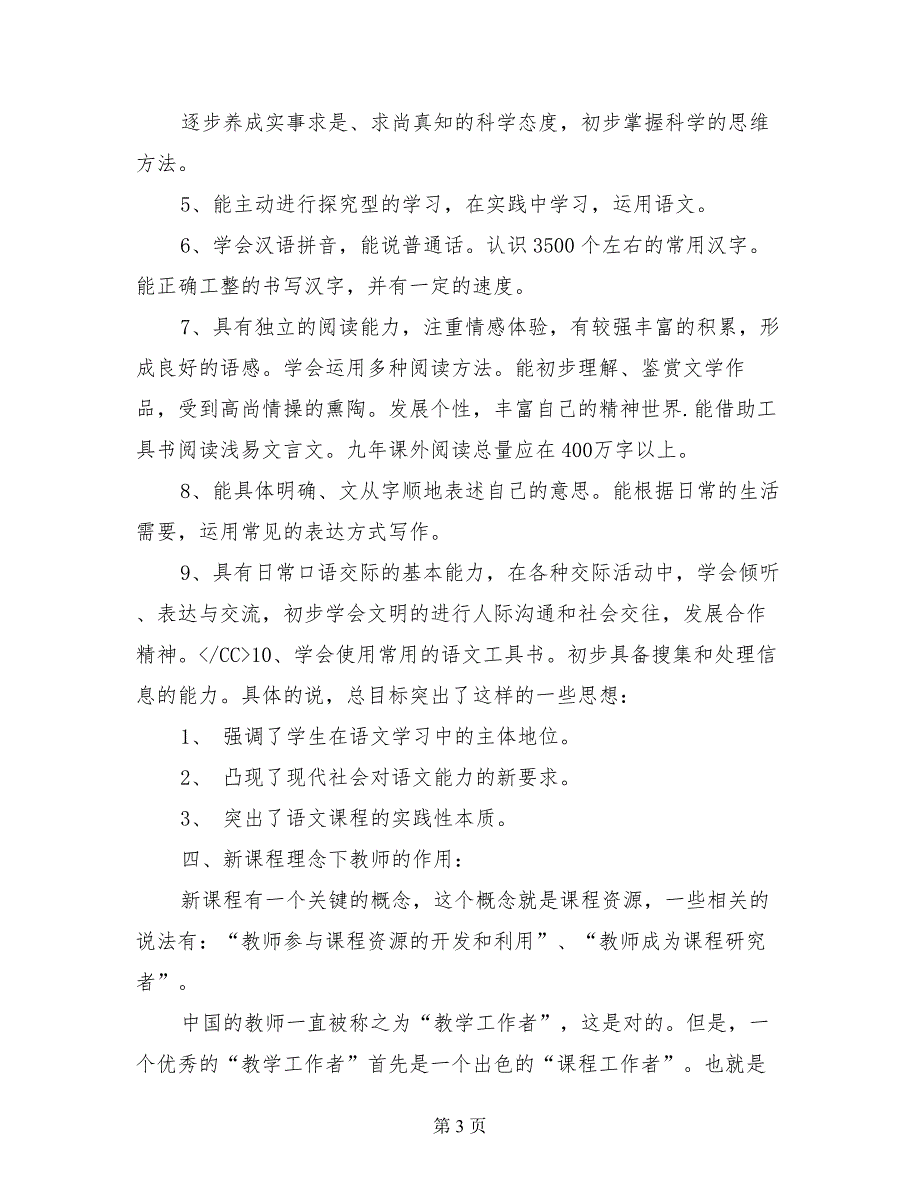 逐步养成实事求是、求尚真知的科学态度，初步掌握科学的思维
方法。
5、能主动进行探究型的学习，在实践中学习，运用语文。
6、学会汉语拼音，能说普通话。认识 3500 个左右的常用汉字。
能正确工整的书写汉字，并有一定的速度。
7、具有独立的阅读能力，注重情感体验，有较强丰富的积累，形
成良好的语感。学会运用多种阅读方法。能初步理解、鉴赏文学作
品，受到高尚情操的熏陶。发展个性，丰富自己的精神世界.能借助工
具书阅读浅易文言文。九年课外阅读总量应在 400万字以上。
8、能具体明确、文从字顺地表述自己的意思。能根据日常的生活
需要，运用常见的表达方式写作。
9、具有日常口语交际的基本能力，在各种交际活动中，学会倾听
、表达与交流，初步学会文明的进行人际沟通和社会交往，发展合作
精神。</CC>10、学会使用常用的语文工具书。初步具备搜集和处理信
息的能力。具体的说，总目标突出了这样的一些思想：
1、 强调了学生在语文学习中的主体地位。
2、 凸现了现代社会对语文能力的新要求。
3、 突出了语文课程的实践性本质。
四、新课程理念下教师的作用：
新课程有一个关键的概念，这个概念就是课程资源，一些相关的
说法有：“教师参与课程资源的开发和利用”、“教师成为课程研究
者”。
中国的教师一直被称之为“教学工作者”，这是对的。但是，一
个优秀的“教学工作者”首先是一个出色的“课程工作者”。也就是
第 3 页